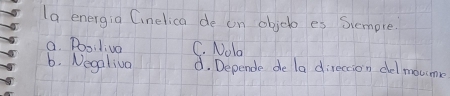 la energia Cinetica de un objeto es Siempre.
a. Positivo C. Nula
b. Negativo d. Depende de la direccion del movimie